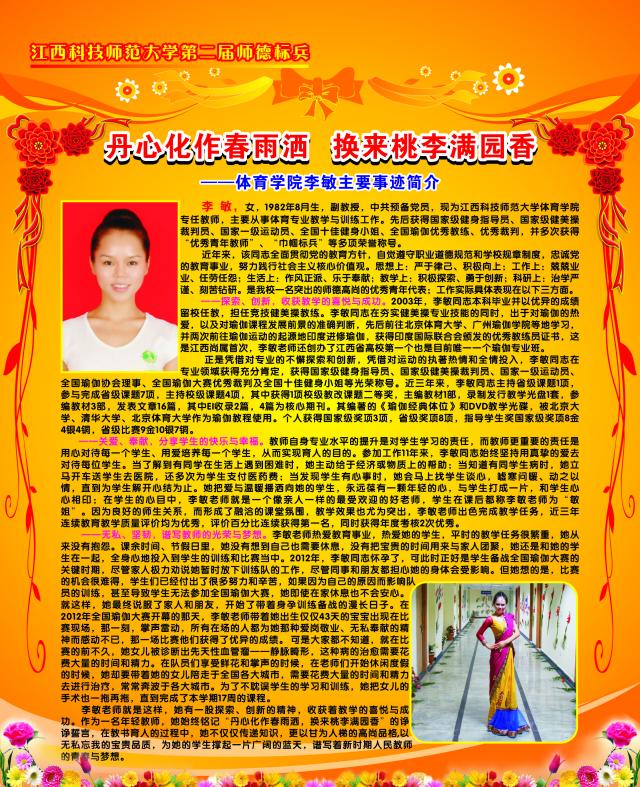 江西科技师范大学第二届师德标兵
丹心化作春雨洒 换来桃李满园香
——体育学院李敏主要事迹简介
李敏，女，1982年8月生，副教授，中共预备党员，现为江西科技师范大学体育学院
专任教师，主要从事体育专业教学与训练工作。先后获得国家级健身指导员、国家级健美操
裁判员、国家一级运动员、全国十佳健身小姐、全国瑜伽优秀教练、优秀裁判，并多次获得
“优秀青年教师”、“巾帼标兵”等多项荣誉称号。
近年来，该同志全面贯彻党的教育方针，自觉遵守职业道德规范和学校规章制度，忠诚党
的教育事业，努力践行社会主义核心价值观。思想上：严于律己、积极向上；工作上：兢兢业
业、任劳任怨；生活上：作风正派、乐于奉献；教学上：积极探索、勇于创新；科研上：治学严
谨、刻苦钻研。是我校一名突出的师德高尚的优秀青年代表；工作实际具体表现在以下三方面。
——探索、创新，收获教学的喜悦与成功。2003年，李敏同志本科毕业并以优异的成绩
留校任教，担任竞技健美操教练。李敏同志在夯实健美操专业技能的同时，出于对瑜伽的热
爱，以及对瑜伽课程发展前景的准确判断，先后前往北京体育大学、广州瑜伽学院等地学习，
并两次前往瑜伽运动的起源地印度进修瑜伽，获得印度国际联合会颁发的优秀教练员证书，这
是江西尚属首次，李敏老师还创办了江西省高校第一个也是目前唯一一个瑜伽专业班。
正是凭借对专业的不懈探索和创新，凭借对运动的执著热情和全情投入，李敏同志在
专业领域获得充分肯定，获得国家级健身指导员、国家级健美操裁判员、国家一级运动员、
全国瑜伽协会理事、全国瑜伽大赛优秀裁判及全国十佳健身小姐等光荣称号。近三年来，李敏同志主持省级课题1项，
参与完成省级课题7项，主持校级课题4项，其中获得1项校级教改课题二等奖，主编教材1部，录制发行教学光盘1套，参
编教材3部，发表文章16篇，其中EI收录2篇，4篇为核心期刊。其编著的《瑜伽经典体位》和DVD教学光碟，被北京大
学、清华大学、北京体育大学作为瑜伽教程使用。个人获得国家级奖项3项，省级奖项8项，指导学生奖国家级奖项8金
4银4铜，省级比赛9金10银7铜。
——关爱、奉献，分享学生的快乐与幸福。教师自身专业水平的提升是对学生学习的责任，而教师更重要的责任是
用心对待每一个学生、用爱培养每一个学生，从而实现育人的目的。参加工作11年来，李敏同志始终坚持用真挚的爱去
对待每位学生。当了解到有同学在生活上遇到困难时，她主动给于经济或物质上的帮助；当知道有同学生病时，她立
马开车送学生去医院，还多次为学生支付医药费；当发现学生有心事时，她会马上找学生谈心，嘘寒问暖、动之以
情，直到为学生解开心结为止。她把爱与温暖播洒向她的学生，永远葆有一颗年轻的心，与学生打成一片，和学生心
心相印；在学生的心目中，李敏老师就是一个像亲人一样的最受欢迎的好老师，学生在课后都称李敏老师为“敏
姐”。因为良好的师生关系，而形成了融洽的课堂氛围，教学效果也尤为突出，李敏老师出色完成教学任务，近三年
连续教育教学质量评价均为优秀，评价百分比连续获得第一名，同时获得年度考核2次优秀。
——无私、坚韧，谱写教师的光荣与梦想。李敏老师热爱教育事业，热爱她的学生，平时的教学任务很繁重，她从
来没有抱怨。课余时间、节假日里，她没有想到自己也需要休息，没有把宝贵的时间用来与家人团聚，她还是和她的学
生在一起，全身心地投入到学生的训练和比赛当中。2012年，李敏同志怀孕了，可此时正好是学生备战全国瑜伽大赛的
关键时期，尽管家人极力劝说她暂时放下训练队的工作，尽管同事和朋友都担心她的身体会受影响。但她想的是，比赛
的机会很难得，学生们已经付出了很多努力和辛苦，如果因为自己的原因而影响队
员的训练，甚至导致学生无法参加全国瑜伽大赛，她即使在家休息也不会安心。
就这样，她最终说服了家人和朋友，开始了带着身孕训练备战的漫长日子。在
2012年全国瑜伽大赛开幕的那天，李敏老师带着她出生仅仅43天的宝宝出现在比
赛现场，那一刻，掌声雷动，所有在场的人都为她那种爱岗敬业、无私奉献的精
神而感动不已，那一场比赛他们获得了优异的成绩。可是大家都不知道，就在比
赛的前不久，她女儿被诊断出先天性血管瘤——静脉畸形，这种病的治愈需要花
费大量的时间和精力。在队员们享受鲜花和掌声的时候，在老师们开始休闲度假
的时候，她却要带着她的女儿陪走于全国各大城市，需要花费大量的时间和精力
去进行治疗，常常奔波于各大城市。为了不耽误学生的学习和训练，她把女儿的
手术也一拖再拖，直到完成了本学期17周的课程。
李敏老师就是这样，她有一股探索、创新的精神，收获着教学的喜悦与成
功。作为一名年轻教师，她始终铭记“丹心化作春雨洒，换来桃李满园香”的诤
诤誓言，在教书育人的过程中，她不仅仅传递知识，更以甘为人梯的高尚品格，以
无私忘我的宝贵品质，为她的学生撑起一片广阔的蓝天，谱写着新时期人民教师
的青春与梦想。